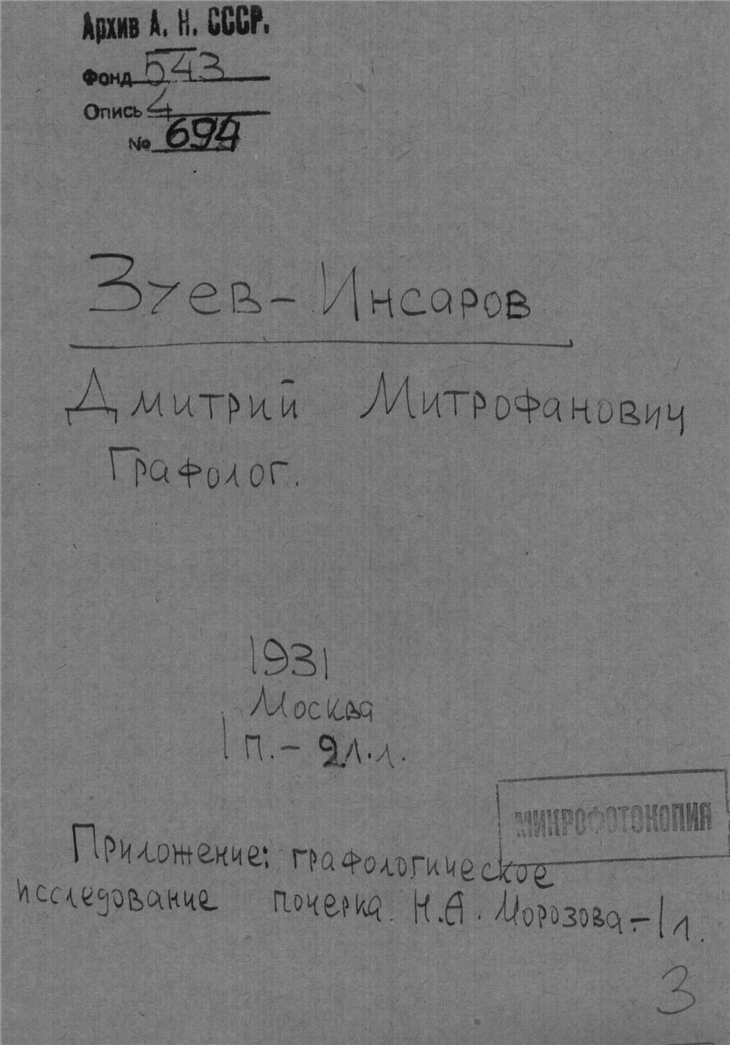 Архив А. Н. СССР.
Фонд 543
Опись 4
№ 694
Зуев-Инсаров
Дмитрий Митрофанович
Графолог.
1931
Москва
1 п. - 2 л.л.
МИКРОФОТОКОПИЯ
Приложение: графологическое
исследование почерка Н.А. Морозова - 1 л.
3